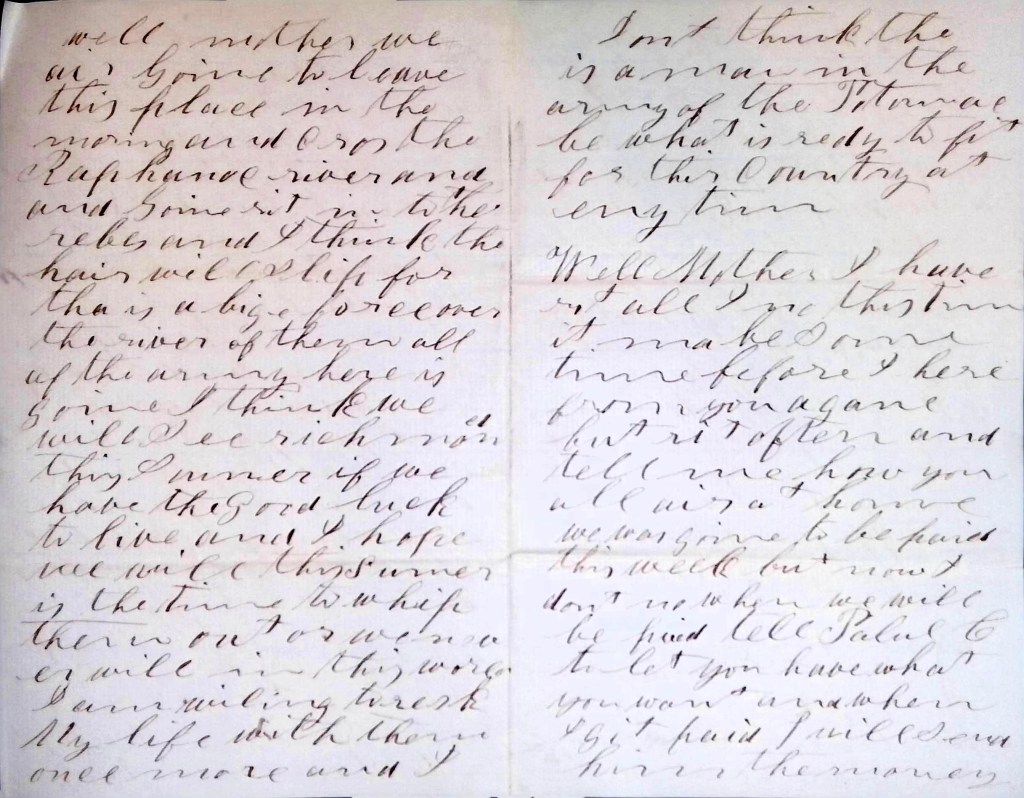 well mother we
air Goine to leave
this place in the
moring and Cros the
Raphanoc river and
and Goine rit in to the
rebes and I think the
hair will Slip for
tha is a bige foree over
the river of them all
of the army here is
goine I think we
will See richmond
this Sumer if we
have the Good luck
to live and I hope
we will this Sumer
is the time to whip
them out or we nev
er will in this world
I am wiling to resk
My life with them
once more and I
Dont think the
is a man in the
army of the Potomac
be what is redy to fit
for this Country at
eny tim
Well Mother I have
rit all I no this time
it ma be Some
time before I here
from you agane
but rit often and
tell me how you
all air at home
we was goine to be paid
this week but now I
dont no when we will
be paid tell C
to let you have what
you want and when
I git paid I will Send
him the money